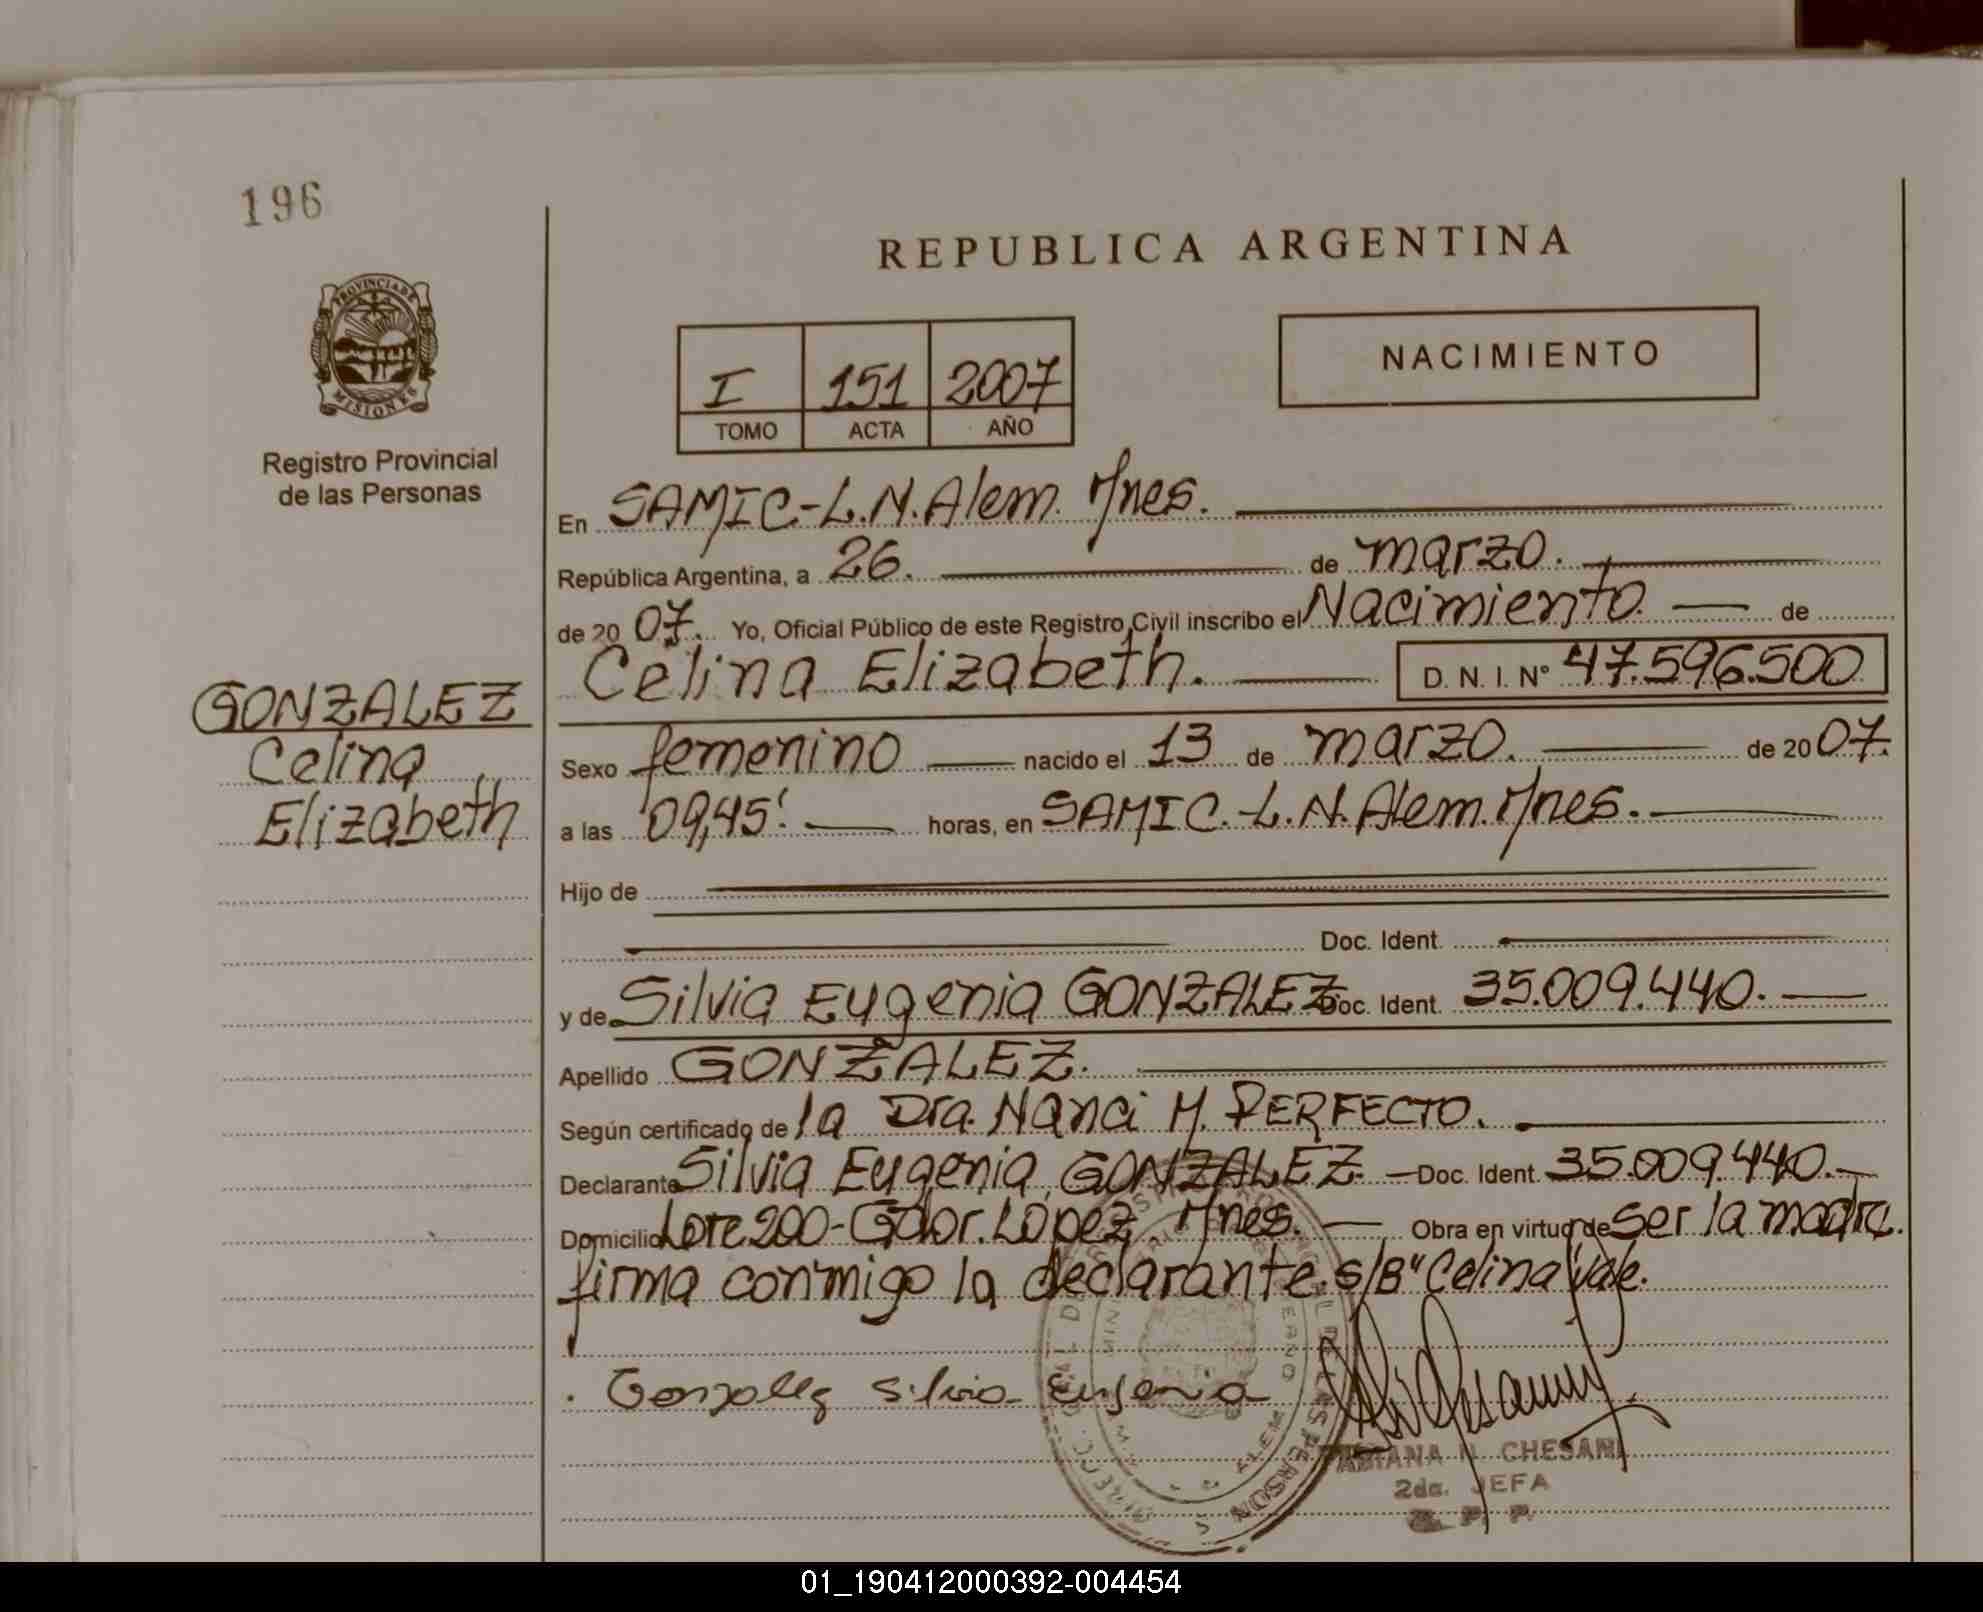 196
REPUBLICA ARGENTINA
PROVINCIA DE
MISIONES
Registro Provincial
de las Personas
I 151 2007
TOMO ACTA AÑO
NACIMIENTO
En SAMIC-L.N.Alem. Mnes.
República Argentina, a 26. de marzo.
de 20 07. Yo, Oficial Público de este Registro Civil inscribo el Nacimiento. de
Celina Elizabeth. D.N.I. Nº 47.596.500
GONZALEZ
Celina
Elizabeth
Sexo femenino nacido el 13 de marzo. de 20 07.
a las 09,45' horas, en SAMIC.-L.N.Alem.Mnes.
Hijo de
Doc. Ident.
y de Silvia Eugenia GONZALEZ Doc. Ident. 35.009.440.
Apellido GONZALEZ.
Según certificado de la Dra. Nanci M. PERFECTO.
Declarante Silvia Eugenia GONZALEZ. Doc. Ident. 35.009.440.
Domicilio Lote 200-Gdor. López. Mnes. Obra en virtud de ser la madre.
firma conmigo la declarante. s/B "Celina" vale.
Gonzalez Silvia Eugenia
FABIANA N. CHESANI
2da. JEFA
R. P. P.
01_190412000392-004454